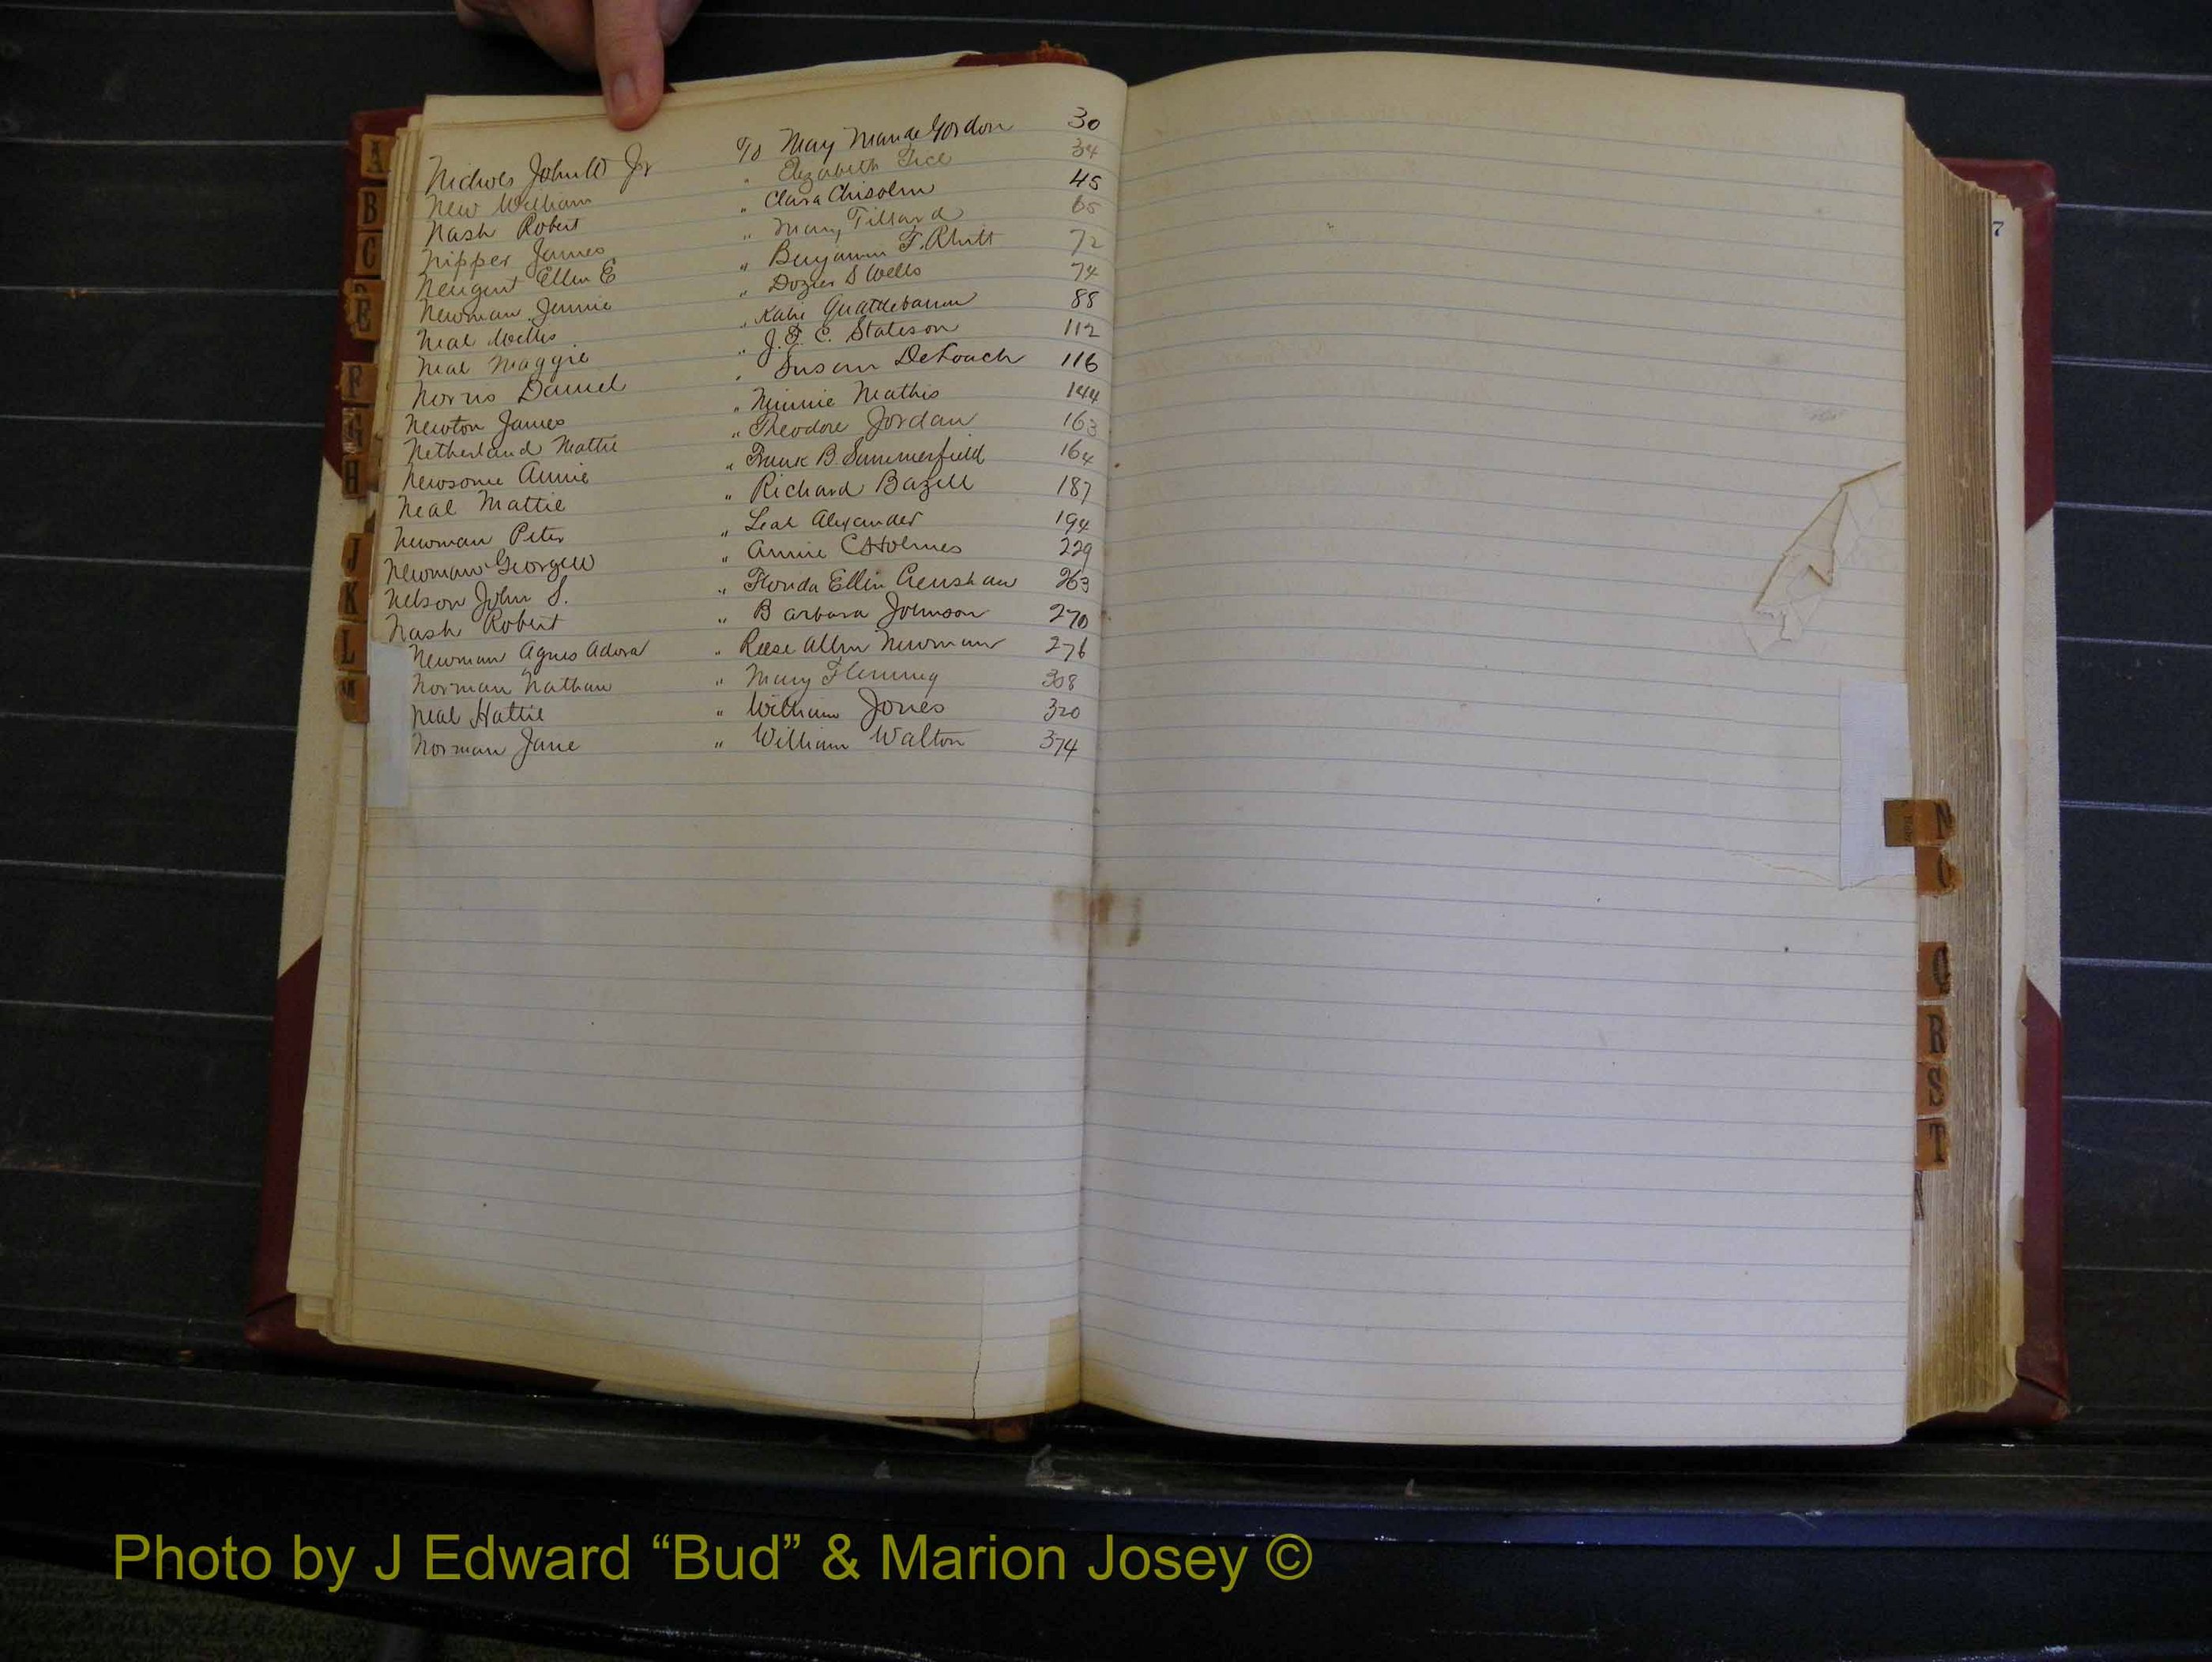 Nichols John W Jr To May Maude Gordon 30
New William " Elizabeth Tice 34
Nash Robert " Clara Chisolm 45
Nipper James " Mary Tillard 65
Neugent Ellen E " Benjamin F. 72
Newman Jennie " Dozier D Wells 74
Neal Willis " Katie Quattlebaum 88
Neal Maggie " J. E. C. Stateson 112
Norris Daniel " Susan DeLoach 116
Newton James " Minnie Mathis 144
Netherland Mattie " Theodore Jordan 163
Newsome Annie " Frank B. Summerfield 164
Neal Mattie " Richard Bazell 187
Newman Peter " Leah Alexander 194
Newman George W " Annie C Holmes 229
Nelson John S. " Florida Ellen Crenshaw 263
Nash Robert " Barbara Johnson 270
Newman Agnes Adora " Reese Allen Newman 276
Norman Nathan " Mary Fleming 308
Neal Hattie " William Jones 320
Norman Jane " William Walton 374
A
B
C
E
F
G
H
J
K
L
M
7
N
O
Q
R
S
T
Photo by J Edward “Bud” & Marion Josey ©